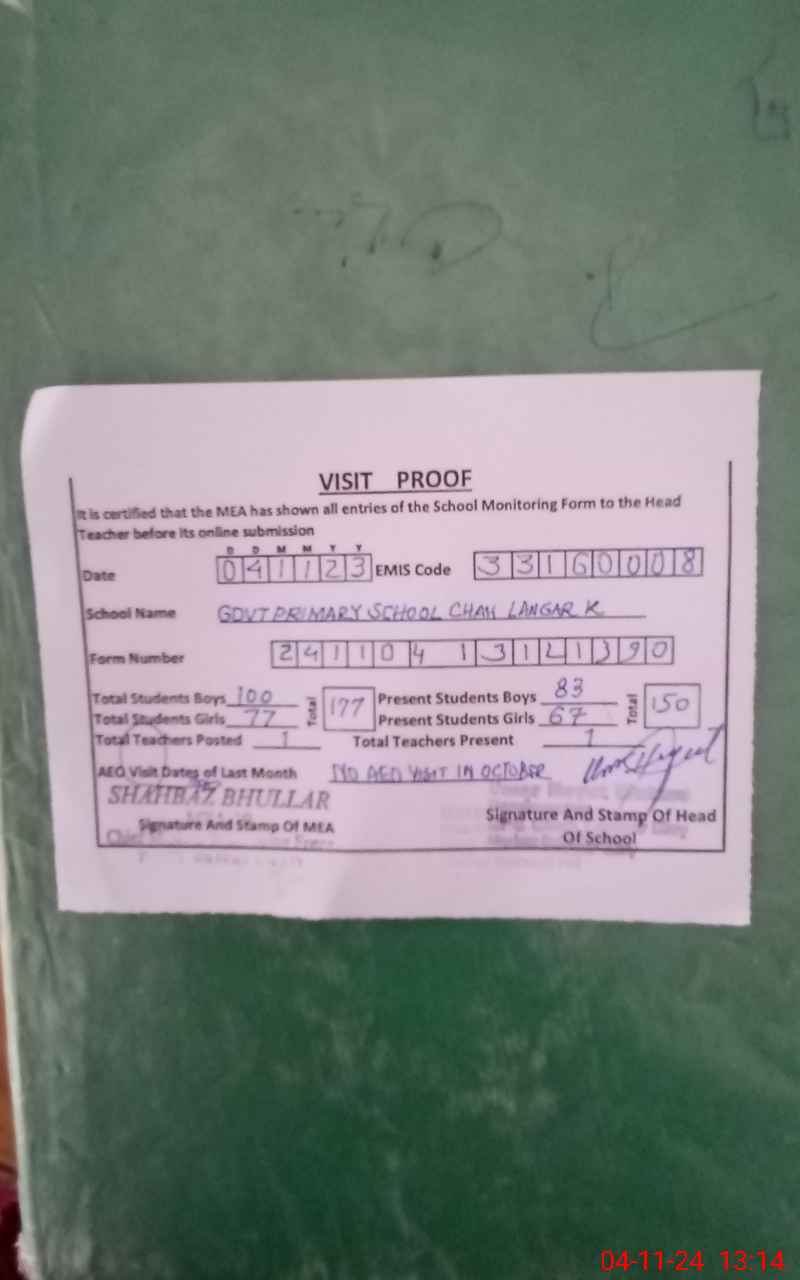 VISIT PROOF
It is certified that the MEA has shown all entries of the School Monitoring Form to the Head
Teacher before its online submission
D D M M Y Y
Date 041123 EMIS Code 33160008
School Name GOVT PRIMARY SCHOOL CHAK LANGAR K
Form Number
Total Students Boys 100 Total 177 Present Students Boys 83 Total 150
Total Students Girls 77 Present Students Girls 67
Total Teachers Posted 1 Total Teachers Present 1
AEO Visit Dates of Last Month NO AEO VISIT IN OCTOBER
SHAHBAZ BHULLAR
Signature And Stamp Of MEA Signature And Stamp Of Head
Of School
04-11-24 13:14